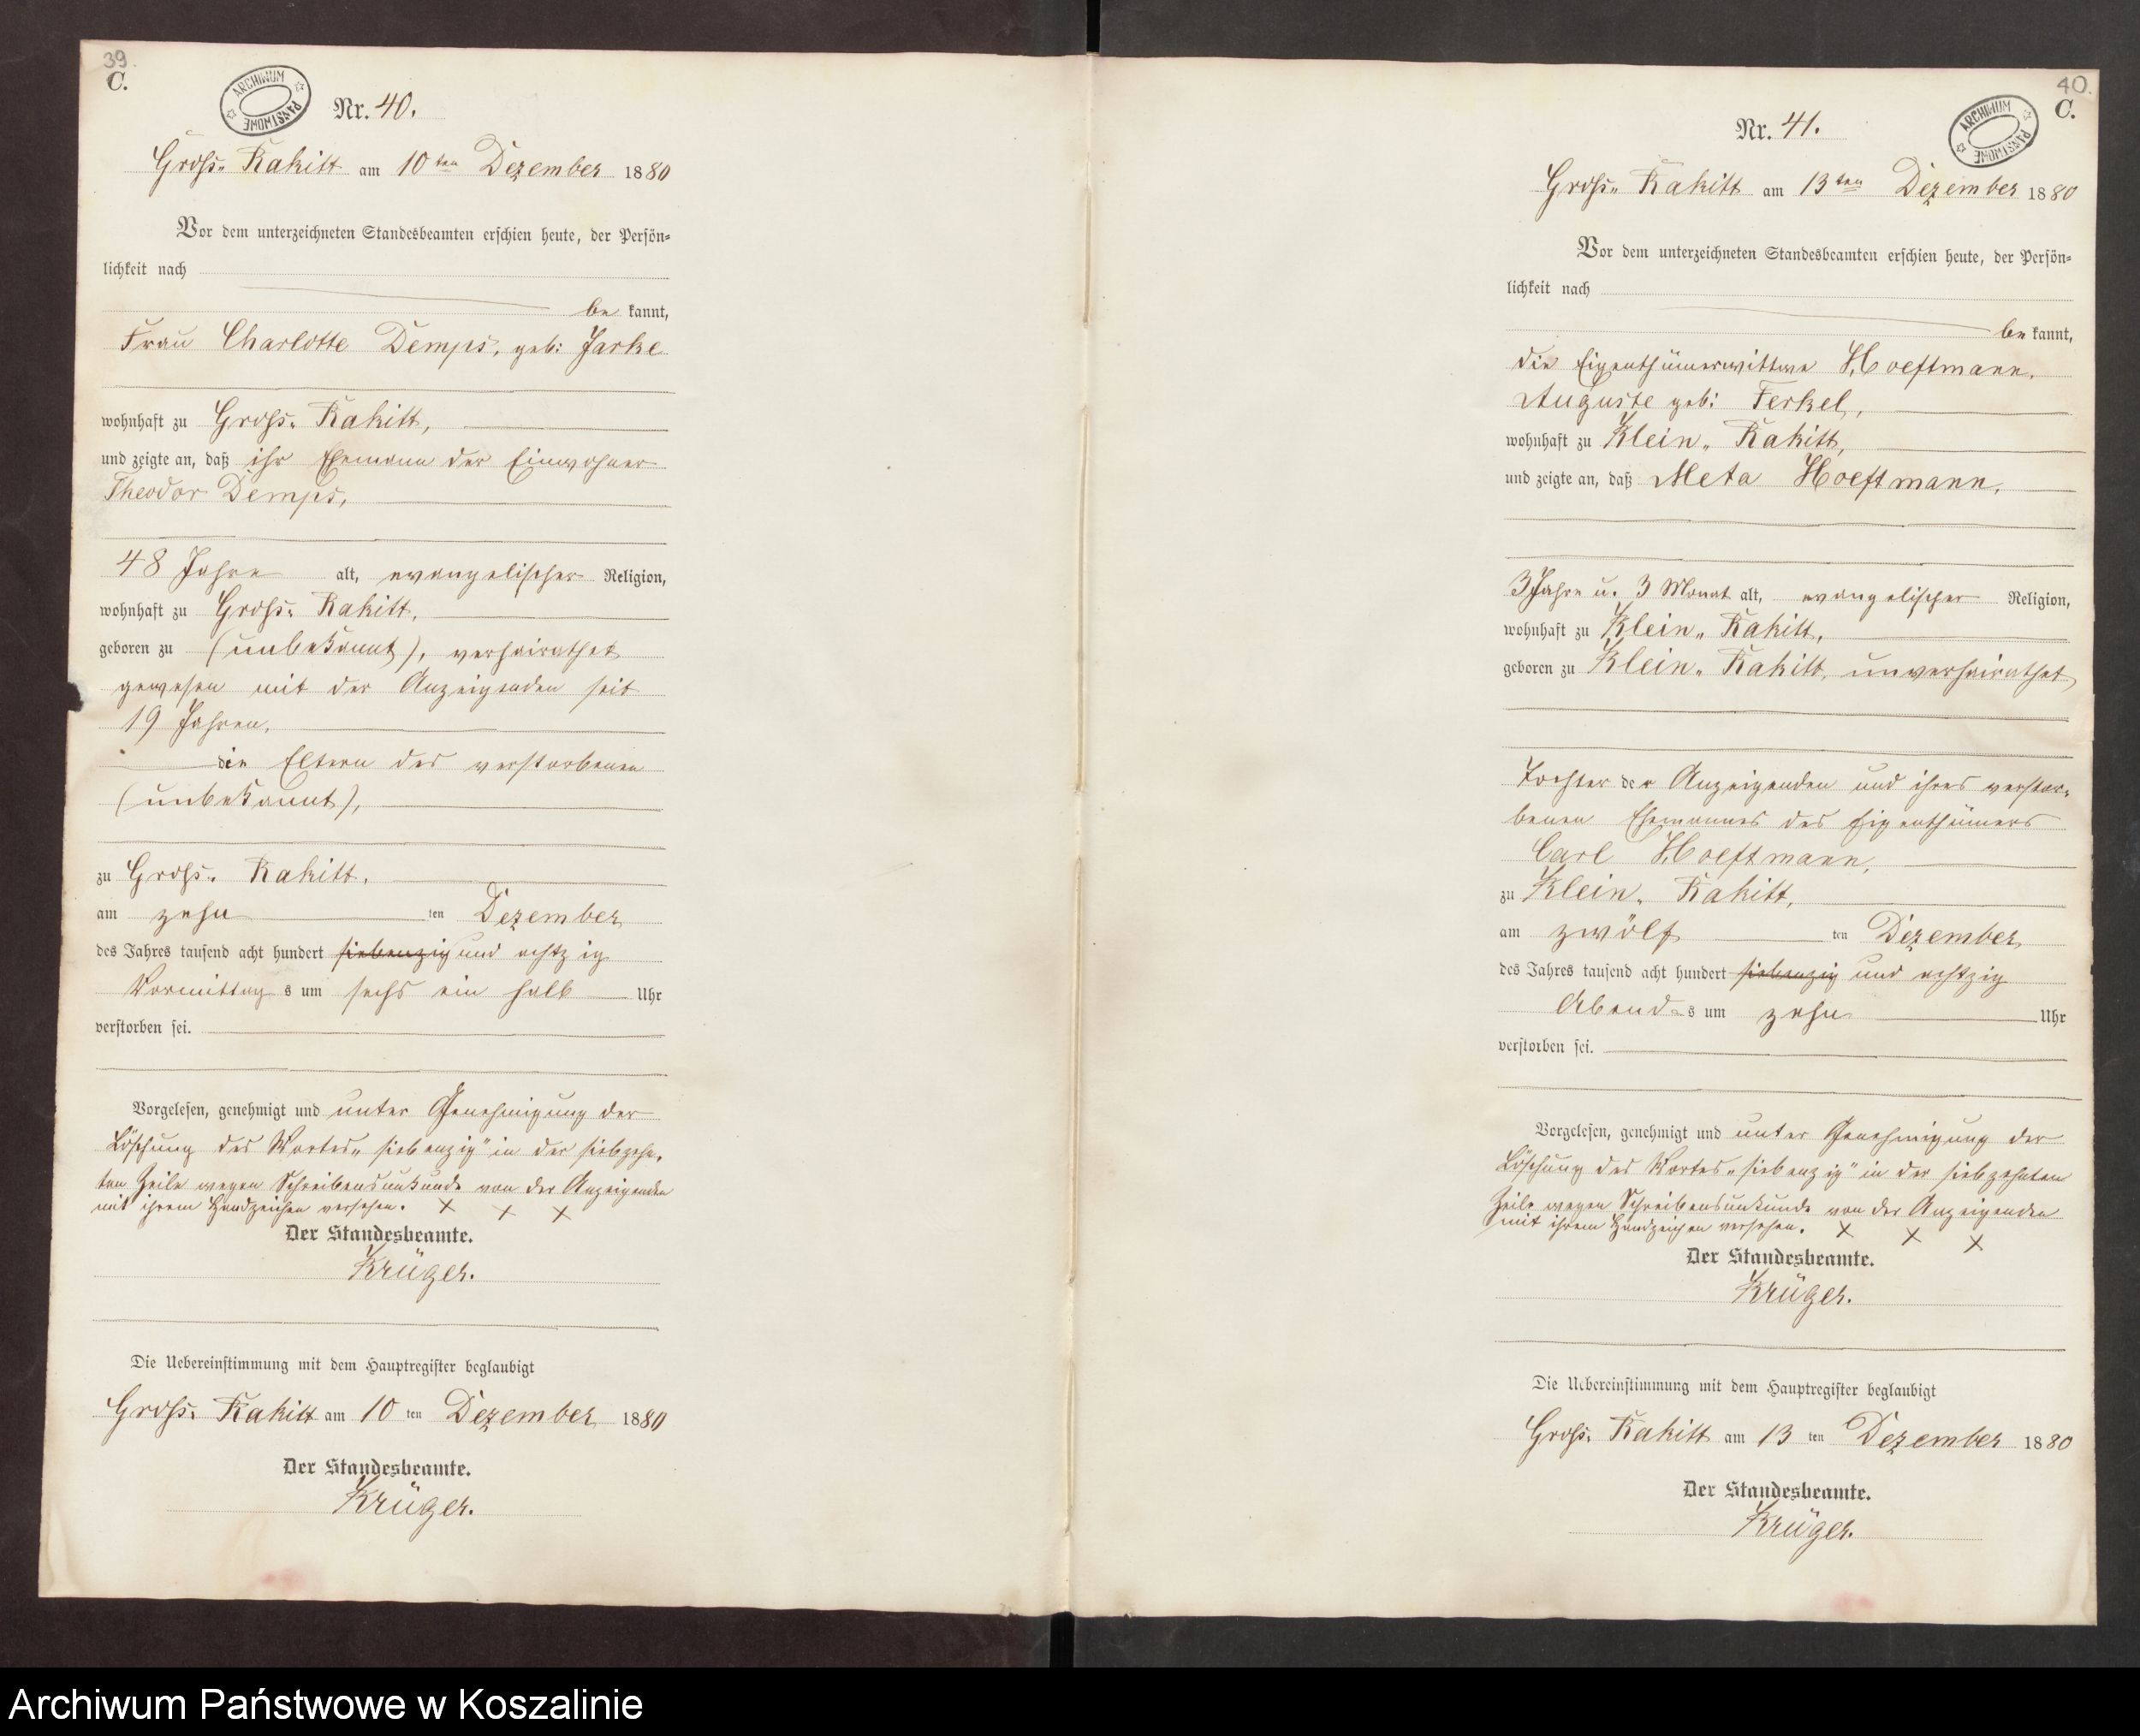 39.
C.
ARCHIWUM PAŃSTWOWE
Nr. 40.
Groß- Rakitt am 10ten Dezember 1880
Vor dem unterzeichneten Standesbeamten erschien heute, der Persön=
lichkeit nach
be kannt,
Frau Charlotte Demps, geb: Jarke
wohnhaft zu Groß- Rakitt,
und zeigte an, daß ihr Ehemann der Einwohner
Theodor Demps,
48 Jahre alt, evangelischer Religion,
wohnhaft zu Groß- Rakitt,
geboren zu (unbekannt), verheirathet
gewesen mit der Anzeigenden seit
19 Jahren,
die Eltern des verstorbenen
(unbekannt),
zu Groß- Rakitt,
am zehn ten Dezember
des Jahres tausend acht hundert siebenzig und achtzig
Vormittag s um sechs ein halb Uhr
verstorben sei.
Vorgelesen, genehmigt und unter Genehmigung der
Löschung des Wortes „siebenzig" in der siebzehn-
ten Zeile wegen Schreibensunkunde von der Anzeigenden
mit ihrem Handzeichen versehen. X X X
Der Standesbeamte.
Krüger.
Die Uebereinstimmung mit dem Hauptregister beglaubigt
Groß- Rakitt am 10 ten Dezember 1880
Der Standesbeamte.
Krüger.
40.
C.
ARCHIWUM PAŃSTWOWE
Nr. 41.
Groß- Rakitt am 13ten Dezember 1880
Vor dem unterzeichneten Standesbeamten erschien heute, der Persön=
lichkeit nach
be kannt,
die Eigenthümerwittwe Hoeftmann,
Auguste geb: Ferkel,
wohnhaft zu Klein- Rakitt,
und zeigte an, daß Meta Hoeftmann,
3 Jahre u. 3 Monat alt, evangelischer Religion,
wohnhaft zu Klein- Rakitt,
geboren zu Klein- Rakitt, unverheirathet,
Tochter der Anzeigenden und ihres verstor-
benen Ehemannes des Eigenthümers
Carl Hoeftmann,
zu Klein- Rakitt,
am zwölf ten Dezember
des Jahres tausend acht hundert siebenzig und achtzig
Abend s um zehn Uhr
verstorben sei.
Vorgelesen, genehmigt und unter Genehmigung der
Löschung des Wortes „siebenzig" in der siebzehnten
Zeile wegen Schreibensunkunde von der Anzeigenden
mit ihrem Handzeichen versehen. X X X
Der Standesbeamte.
Krüger.
Die Uebereinstimmung mit dem Hauptregister beglaubigt
Groß- Rakitt am 13 ten Dezember 1880
Der Standesbeamte.
Krüger.
Archiwum Państwowe w Koszalinie